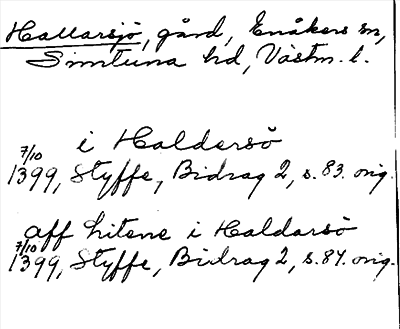 Hallarsjö, gård, Enåkers sn,
Simtuna hd, Västm. l.
i Haldersö
7/10
1399, Styffe, Bidrag 2, s. 83. orig.
aff hitene i Haldarsö
7/10
1399, Styffe, Bidrag 2, s. 84. orig.